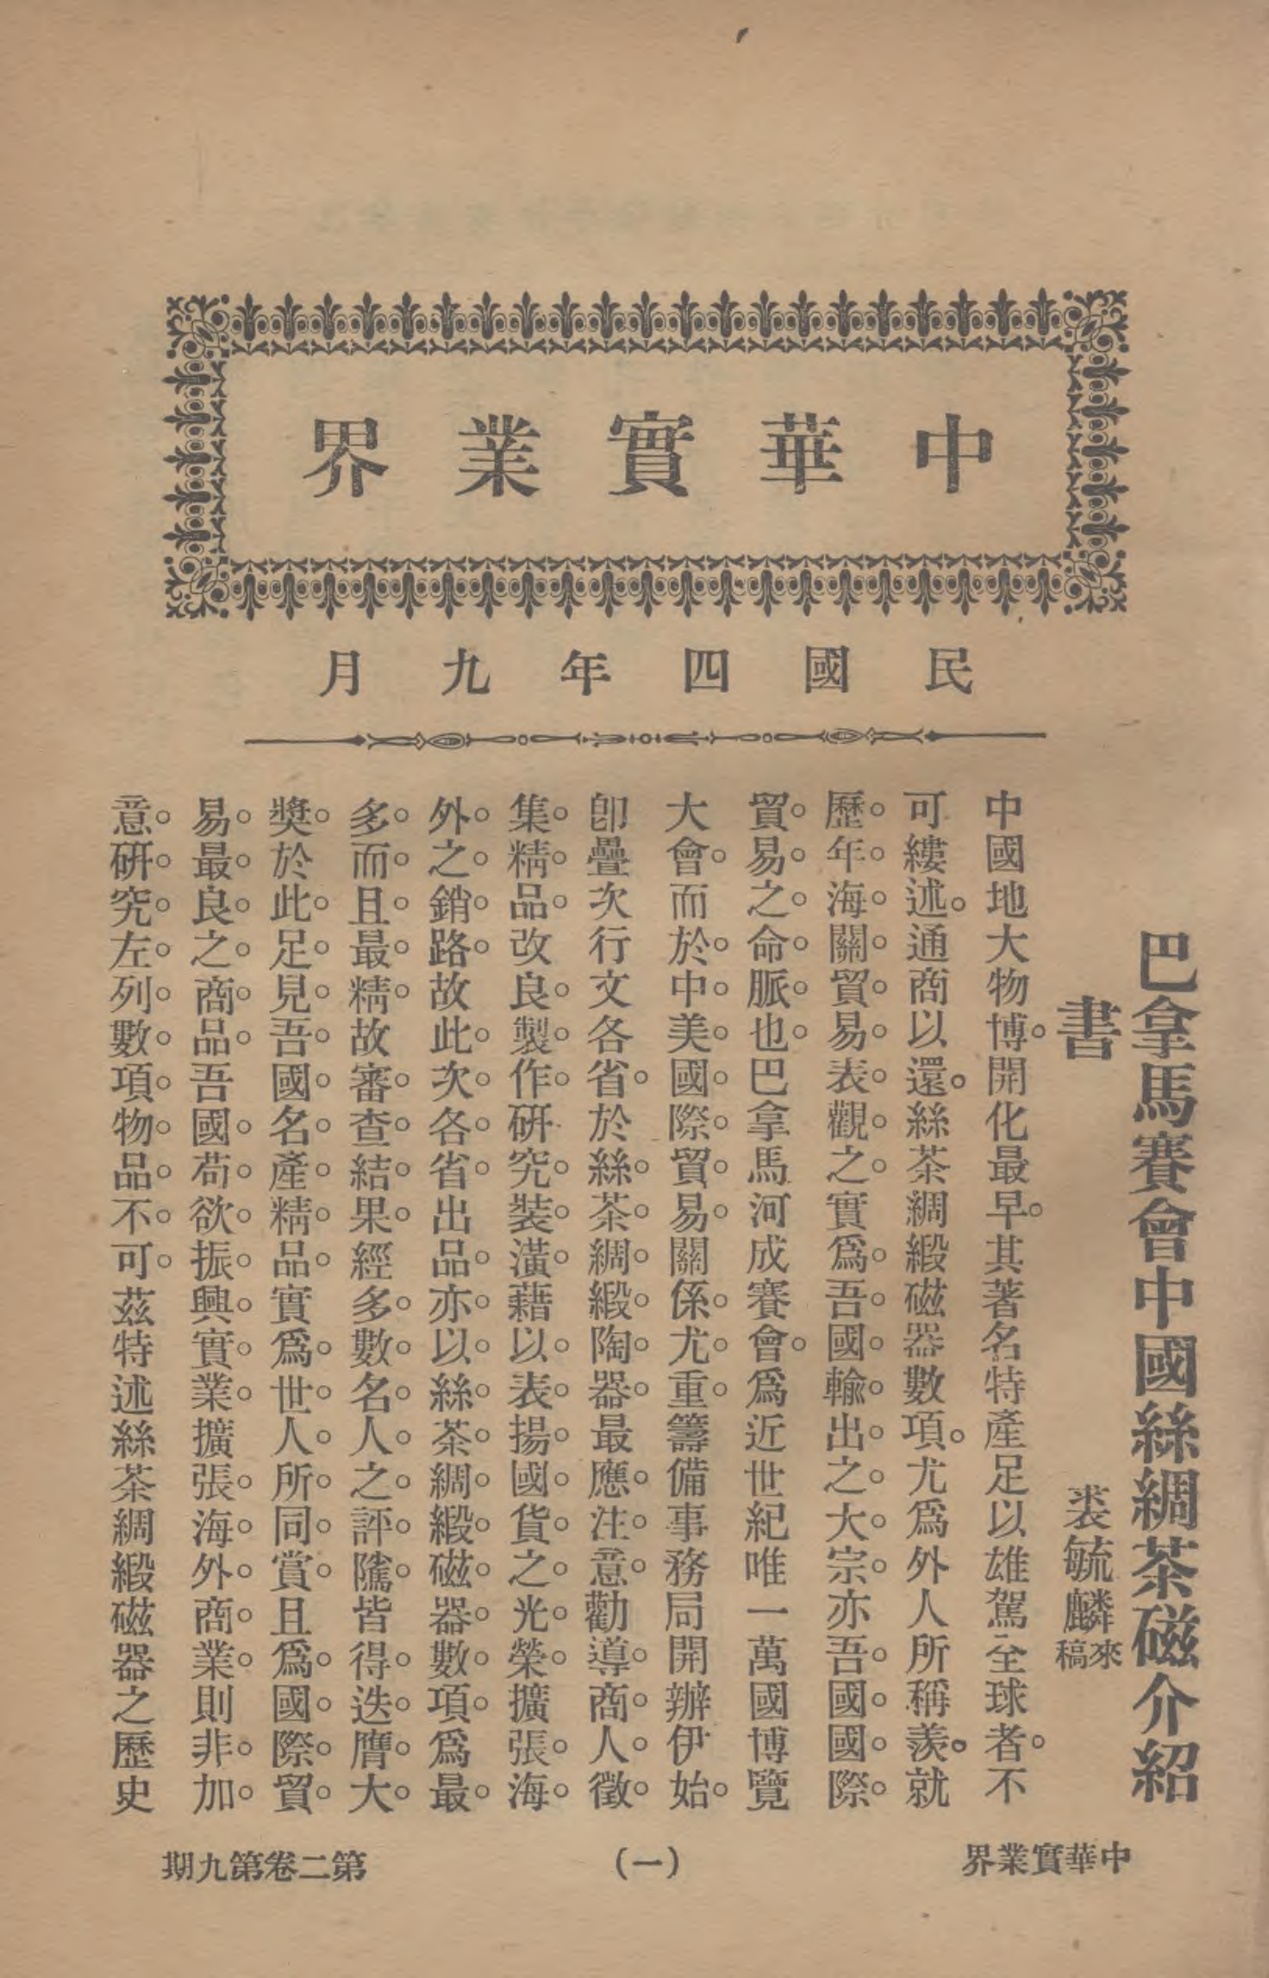 中華實業界
民國四年九月
巴拿馬賽會中國絲綢茶磁介紹
書
裘毓麟來稿
中國地大物博。開化最早。其著名特產足以雄駕全球者。不
可縷述。通商以還。絲茶綢緞磁器數項。尤爲外人所稱羨。就
歷。年。海。關。貿。易。表。觀。之。實爲。吾。國。輸。出。之。大。宗。亦吾。國。國。際。
貿。易。之。命。脈。也。巴拿馬河成賽會。爲近世紀唯一萬國博覽
大會。而於。中。美。國。際。貿。易。關係。尤。重。籌備事務局開辦伊始。
卽疊次行文各省。於絲。茶。綢。緞。陶。器。最應。注。意。勸導。商。人。徵。
集。精。品。改良。製。作。研究。裝。潢。藉以。表。揚。國。貨。之。光。榮。擴張。海。
外。之。銷。路。故此。次。各。省。出品。亦。以。絲。茶。綢。緞。磁。器。數。項。爲最。
多。而。且。最。精。故審。查。結。果。經多。數。名。人。之。評。隲。皆得。迭。膺。大。
獎。於此。足。見。吾。國。名。產。精。品。實爲。世。人。所。同。賞。且爲。國。際。貿。
易。最。良。之。商。品。吾國。苟。欲。振。興。實。業。擴張。海。外。商。業。則非。加。
意。研。究。左。列。數。項。物。品。不。可。茲特述絲茶綢緞磁器之歷史
中華實業界
(一)
第二卷第九期